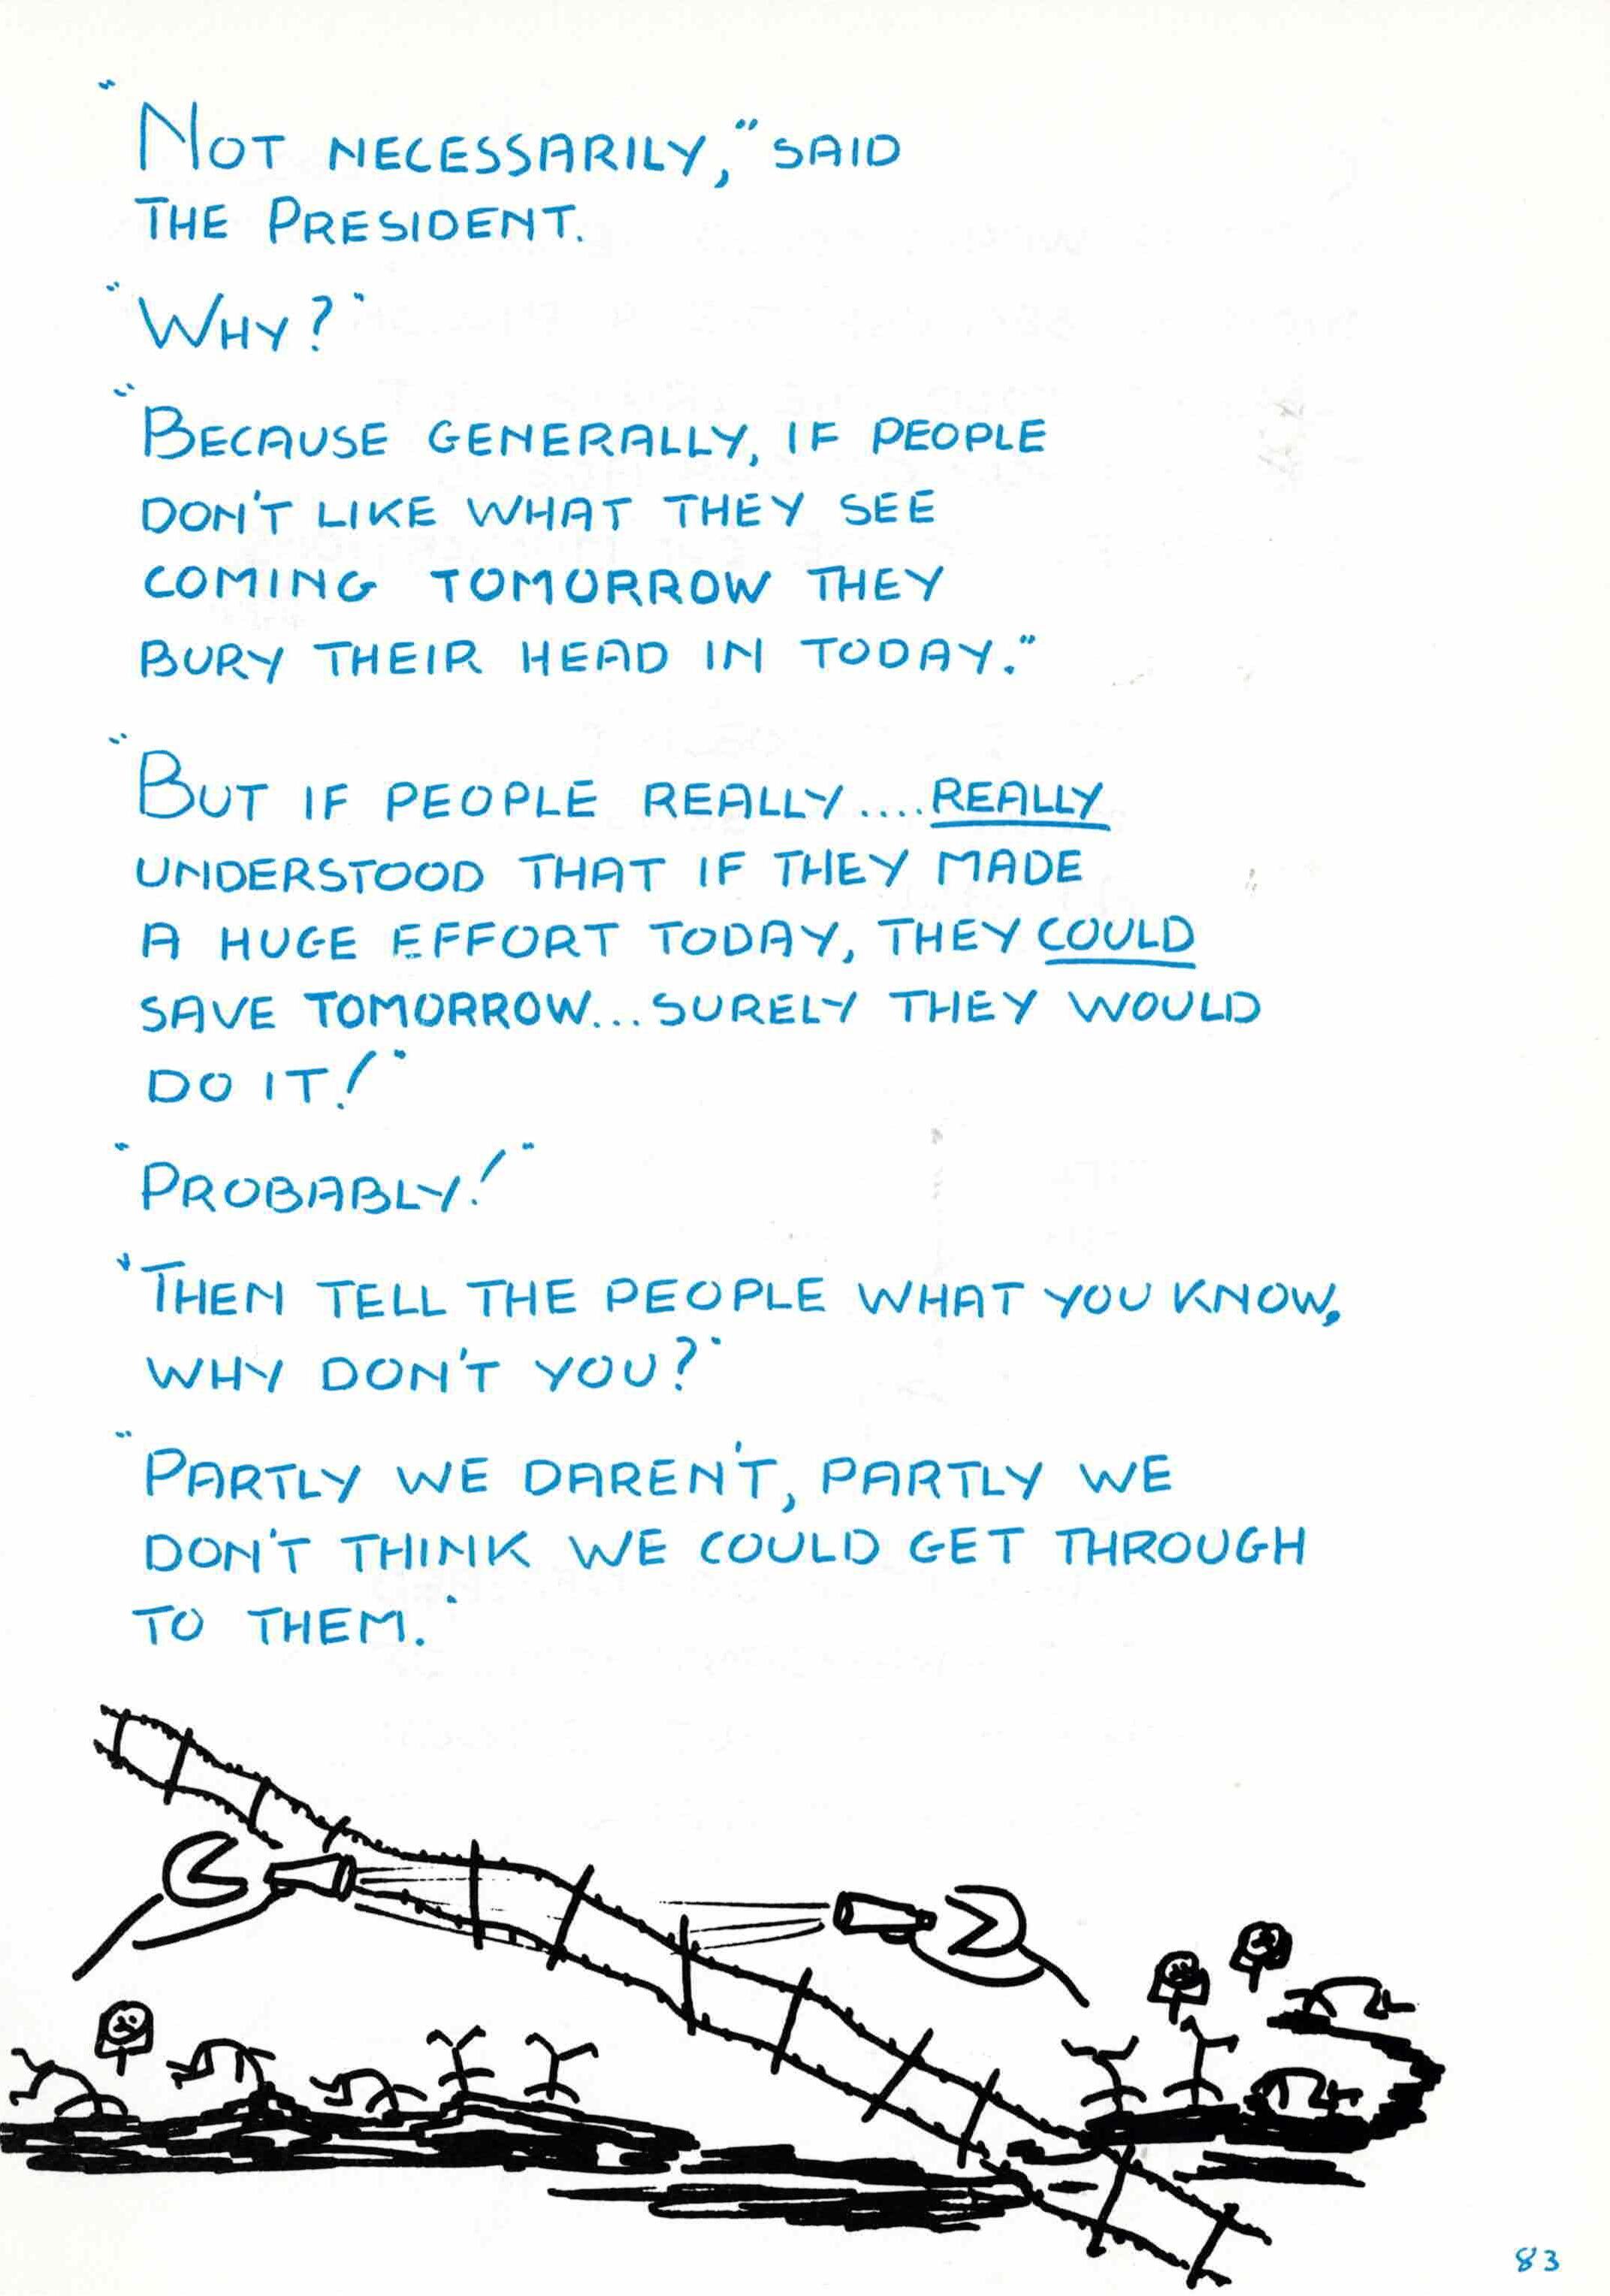 "NOT NECESSARILY," SAID
THE PRESIDENT.
"WHY?"
"BECAUSE GENERALLY, IF PEOPLE
DON'T LIKE WHAT THEY SEE
COMING TOMORROW THEY
BURY THEIR HEAD IN TODAY."
"BUT IF PEOPLE REALLY....REALLY
UNDERSTOOD THAT IF THEY MADE
A HUGE EFFORT TODAY, THEY COULD
SAVE TOMORROW...SURELY THEY WOULD
DO IT!"
"PROBABLY!"
"THEN TELL THE PEOPLE WHAT YOU KNOW,
WHY DON'T YOU?"
"PARTLY WE DAREN'T, PARTLY WE
DON'T THINK WE COULD GET THROUGH
TO THEM."
83